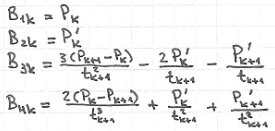 B₁ₖ = Pₖ
B₂ₖ = P'ₖ
B₃ₖ = 3(Pₖ₊₁ - Pₖ)/t²ₖ₊₁ - 2P'ₖ/tₖ₊₁ - P'ₖ₊₁/tₖ₊₁
B₄ₖ = 2(Pₖ - Pₖ₊₁)/t³ₖ₊₁ + P'ₖ/t²ₖ₊₁ + P'ₖ₊₁/t²ₖ₊₁